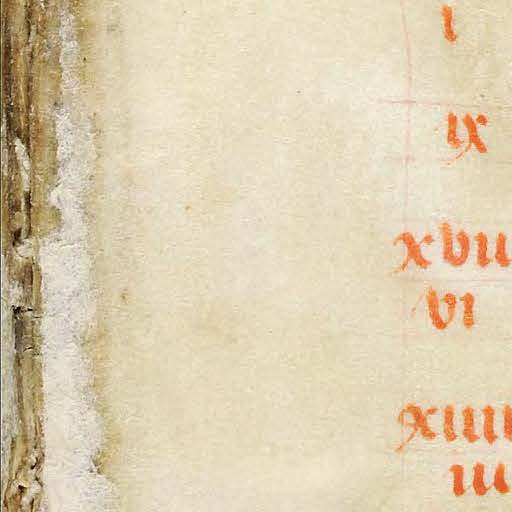 i
ix
xvii
vi
xiiii
iii